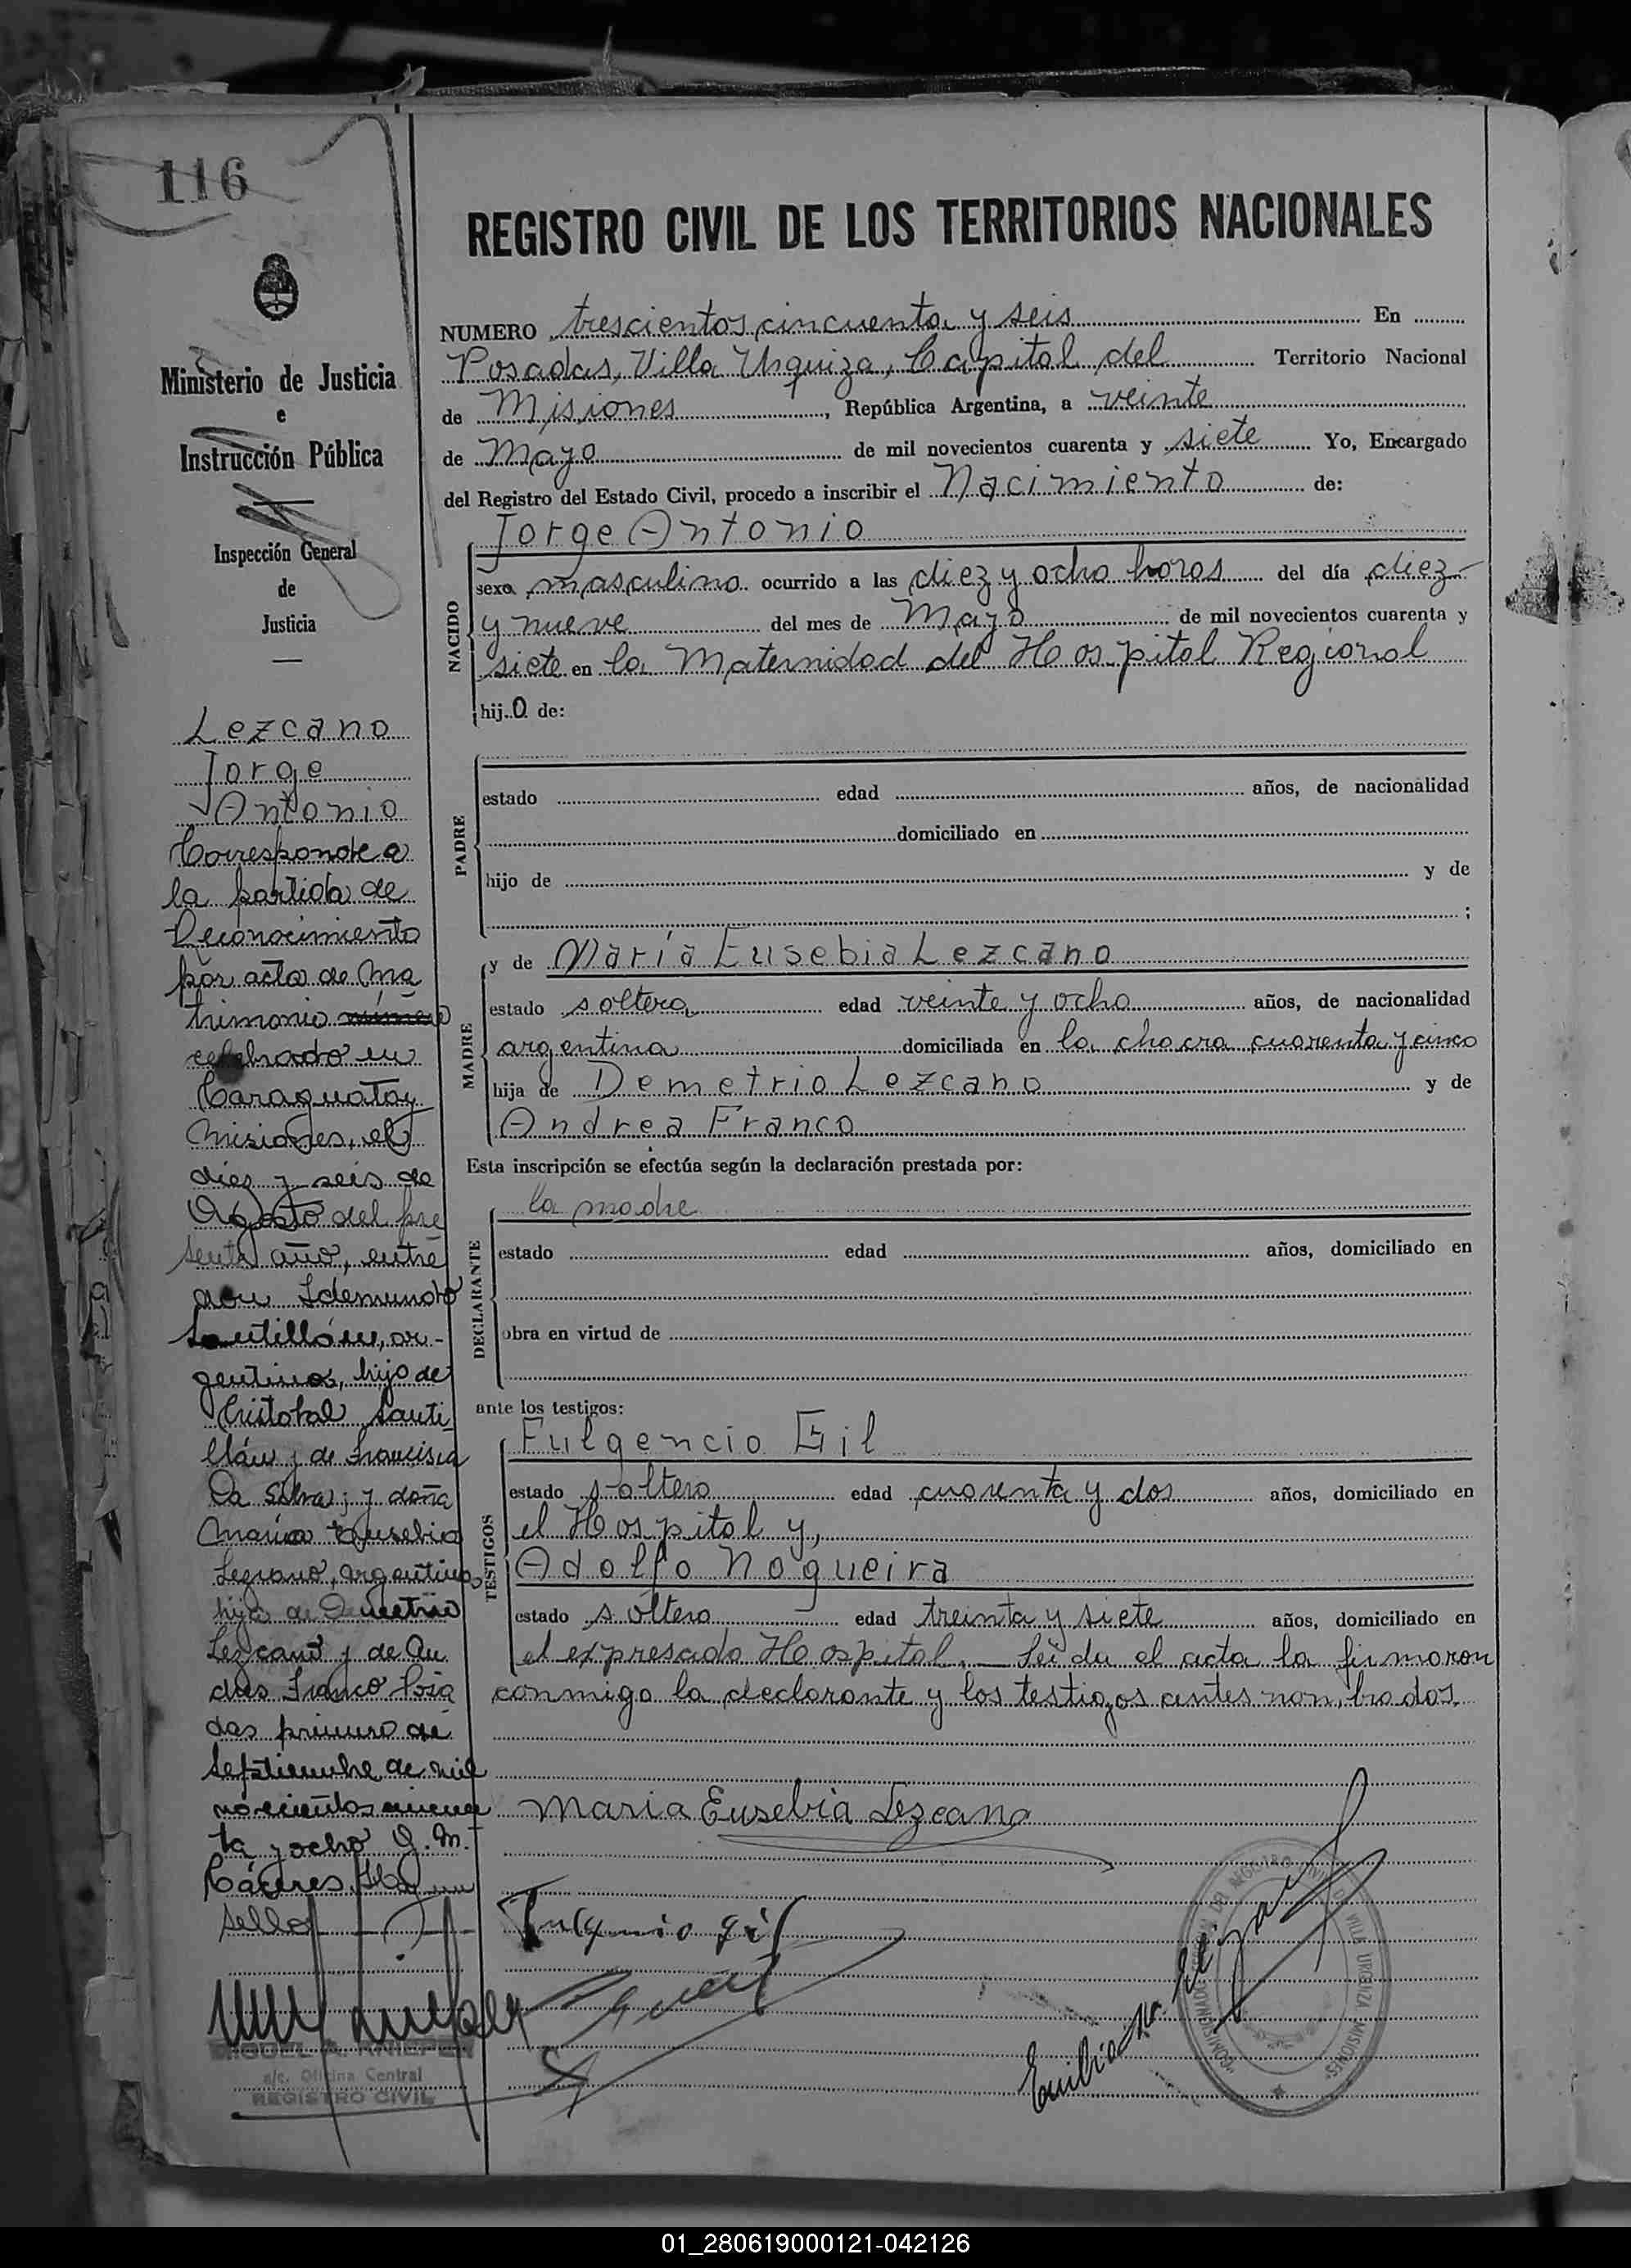 116
Ministerio de Justicia
e
Instrucción Pública
Inspección General
de
Justicia
Lezcano
Jorge
Antonio
Corresponde a
la partida de
Reconocimiento
por acta de Ma
trimonio
celebrado en
Caraguatay
Misiones, el
diez y seis de
Agosto del pre
sente año, entre
don Idemundo
Santillán, ar-
gentino, hijo de
Cristobal Santi
llán y de Francisca
Da Silva; y doña
María Eusebia
Lezcano, argentina,
hija de Demetrio
Lezcano y de An
drea Franco Posa
das primero de
Septiembre de mil
novecientos cincuen
ta y ocho G. M.
Cáceres. Hay un
sello
MIGUEL A. KNIEPER
a/c. Oficina Central
REGISTRO CIVIL
REGISTRO CIVIL DE LOS TERRITORIOS NACIONALES
NUMERO trescientos cincuenta y seis En
Posadas, Villa Urquiza, Capital del Territorio Nacional
de Misiones, República Argentina, a veinte
de Mayo de mil novecientos cuarenta y siete Yo, Encargado
del Registro del Estado Civil, procedo a inscribir el Nacimiento de:
NACIDO
Jorge Antonio
sexo masculino ocurrido a las diez y ocho horas del día diez
y nueve del mes de Mayo de mil novecientos cuarenta y
siete en la Maternidad del Hospital Regional
hijo de:
PADRE
estado edad años, de nacionalidad
domiciliado en
hijo de y de
;
MADRE
y de María Eusebia Lezcano
estado soltera edad veinte y ocho años, de nacionalidad
argentina domiciliada en la chacra cuarenta y cinco
hija de Demetrio Lezcano y de
Andrea Franco
Esta inscripción se efectúa según la declaración prestada por:
DECLARANTE
la madre
estado edad años, domiciliado en
obra en virtud de
ante los testigos:
TESTIGOS
Fulgencio Gil
estado soltero edad cuarenta y dos años, domiciliado en
el Hospital y,
Adolfo Nogueira
estado soltero edad treinta y siete años, domiciliado en
el expresado Hospital. Leída el acta la firmaron
conmigo la declarante y los testigos antes nombrados
Maria Eusebia Lezcano
VILLA URQUIZA MISIONES
01_280619000121-042126